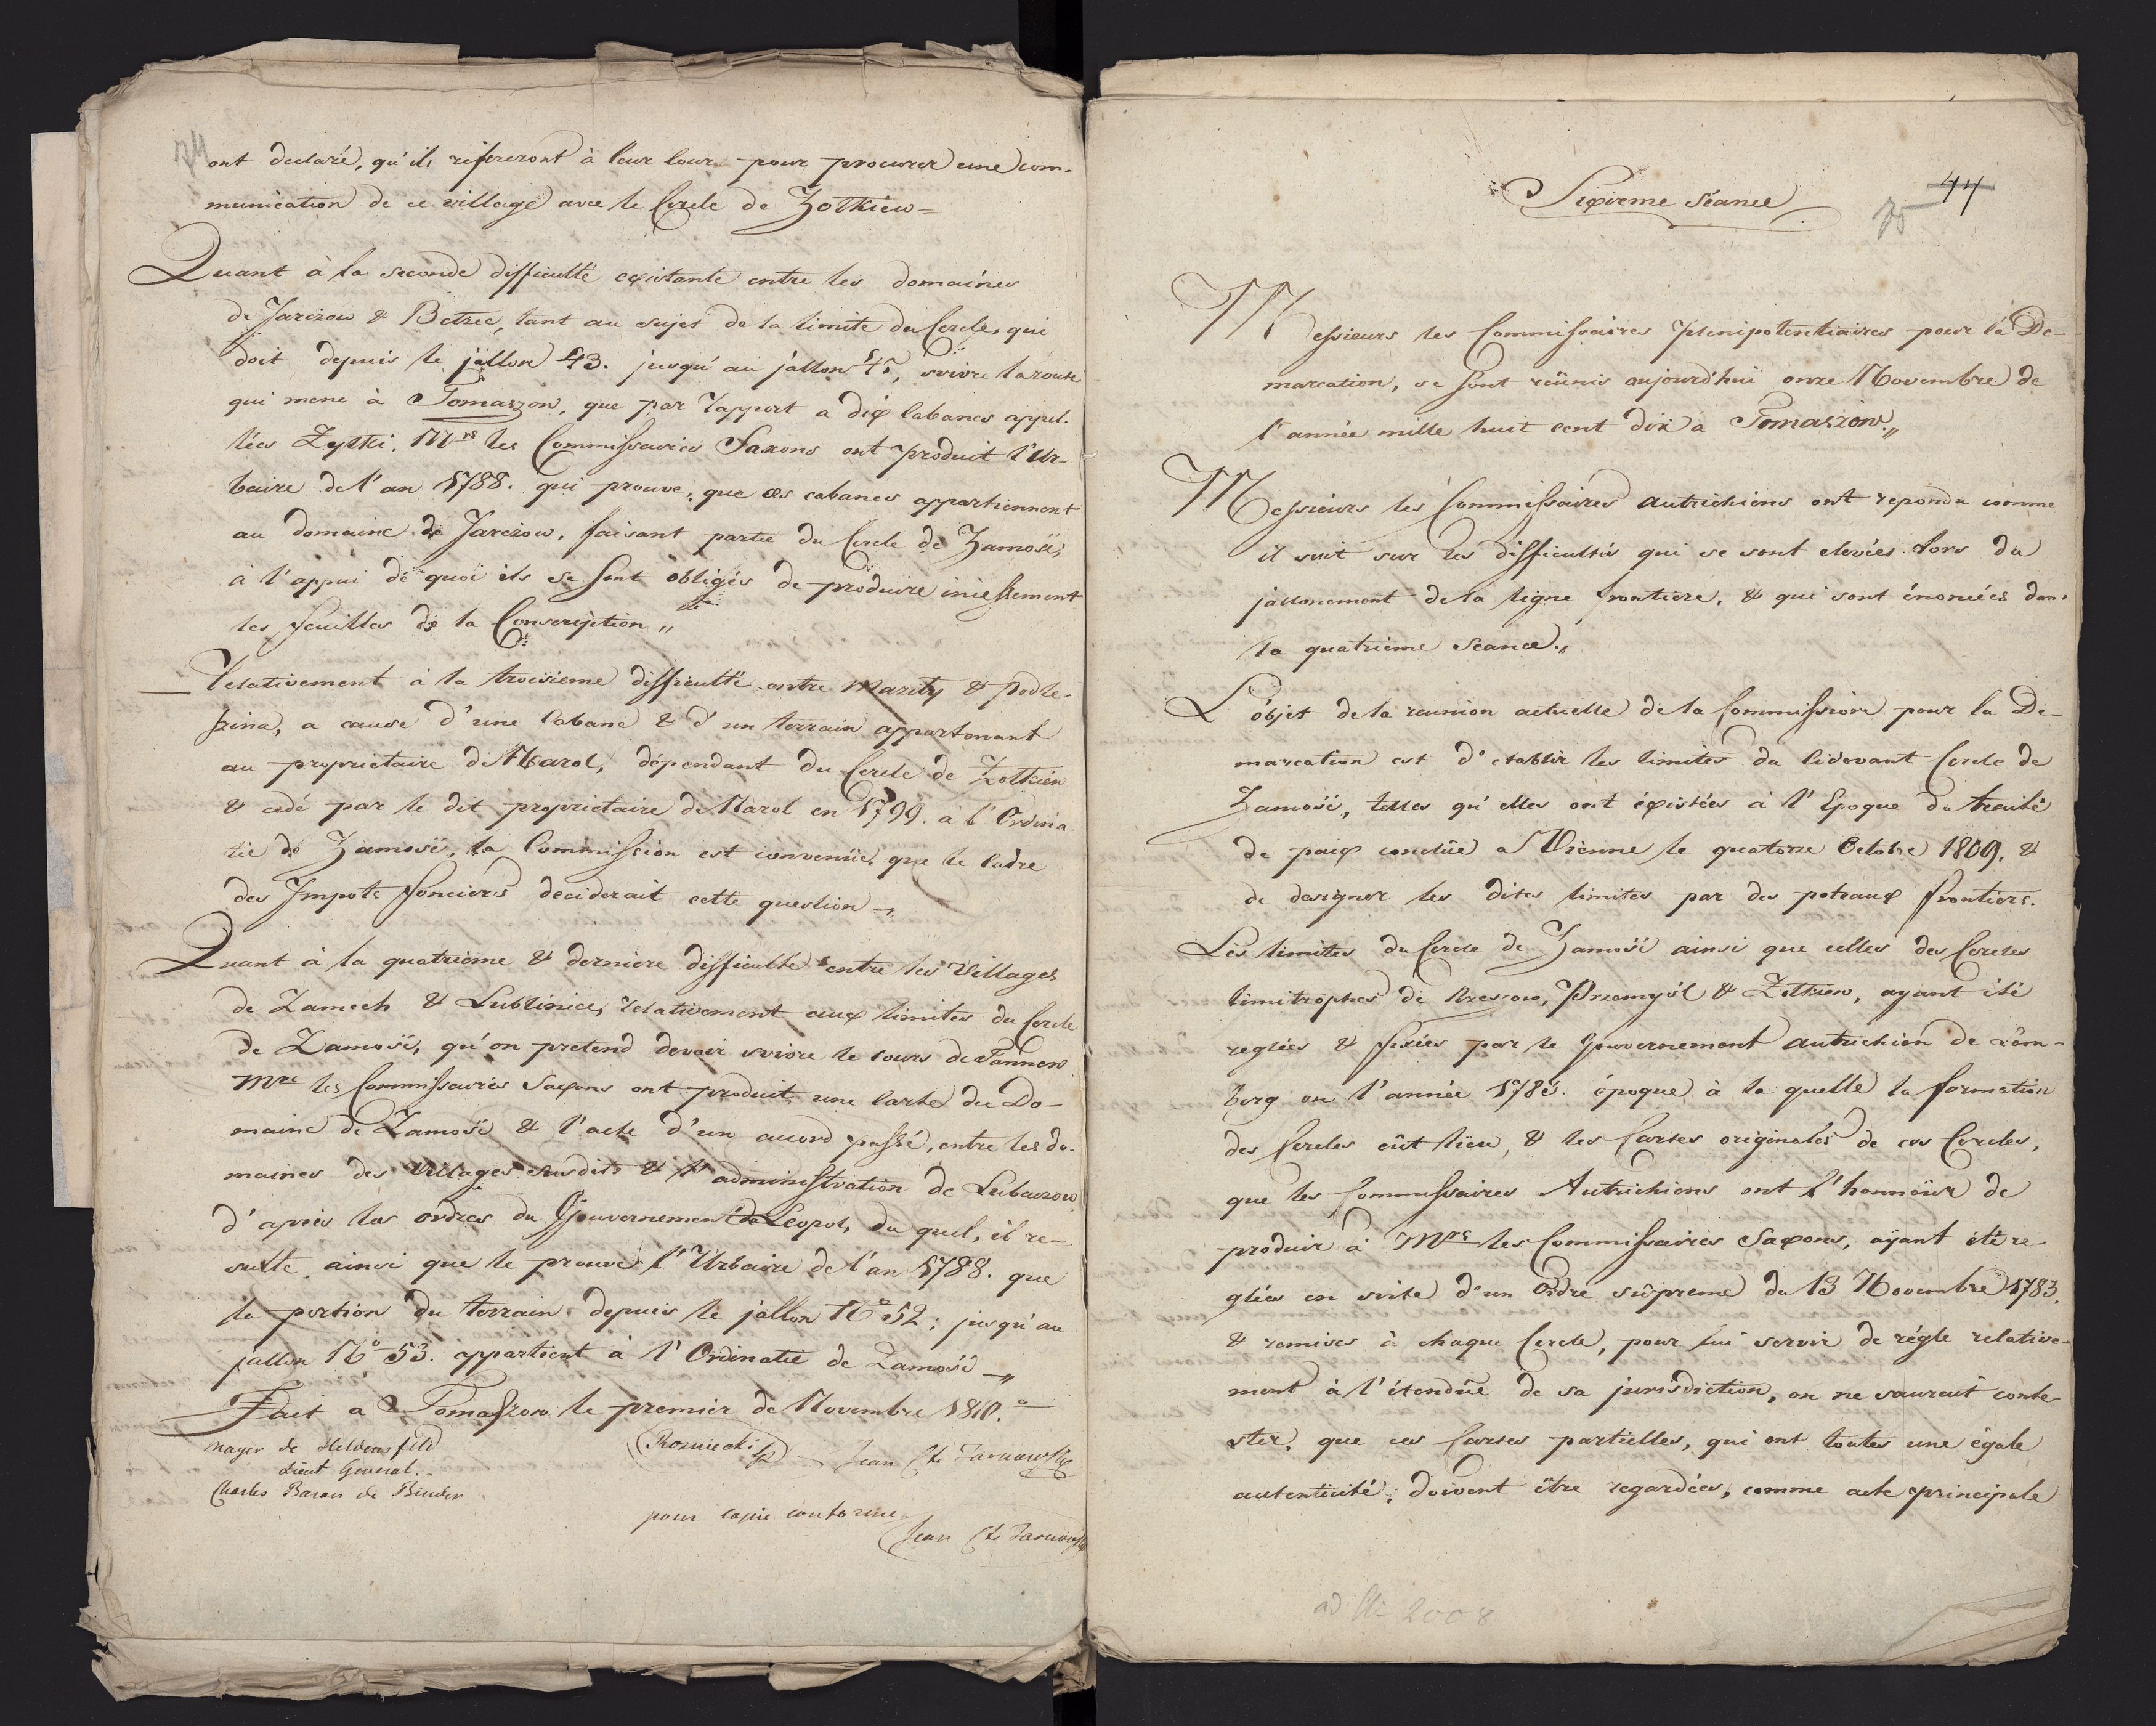 ont declaré, qu'ils réfereront à leur Cour pour procurer une com-
munication de ce village avec le Cercle de Zolkiew =
Quant à la seconde difficulté epistante entre les domaines
de Jarczow & Betzec, tant au sujet de la limite du Cercle, qui
doit depuis le jallon 43. jusqu'au jallon 45, suivre la route
qui mene à Tomaszow, que par rapport a dix Cabanes appel-
lées Zytki. Mrs les Commissaires Saxons ont produit l'Ur-
baire de l'an 1788. qui prouve, que ces cabanes appartiennent
au domaine de Jarczow, faisant partie du Cercle de Zamość,
à l'appui de quoi ils se sont obligés de produire incessement
les feuilles de la Conscription „
Relativement à la troisieme difficulté entre Maziły & Podle-
szina, a cause d'une Cabane & d'un terrain appartenant
au proprietaire de Narol, dépendant du Cercle de Zolkiew
& cedé par le dit proprietaire de Narol en 1799. à l'Ordina-
tie de Zamość, la Commission est convenüe, que le Cadre
des Impots fonciers deciderait cette question „
Quant à la quatrieme & derniere difficulté entre les Villages
de Zamech & Lublinice, relativement aux limites du Cercle
de Zamość, qu'on pretend devoir suivre le cours de Tannew
Mrs les Commissaires Saxons ont produit une Carte du Do-
maine de Zamość & l'acte d'un accord passé, entre les do-
maines des Villages susdits & l'administration de Lubaczow
d'après les ordres du Gouvernement de Leopol, du quel, il re-
sulte ainsi que le prouve l'Urbaire de l'an 1788. que
la portion du terrain depuis le jallon No 52. jusqu'au
jallon No 53. appartient à l'Ordinatie de Zamość „
Fait a Tomaszow le premier de Novembre 1810.
Mayer de Heldensfeld
Lieut General.
Charles Baron de Binder
Rozniecki
Jean Cte Tarnowski
pour copie conforme
Jean Cte Tarnowski
44
75
Sixieme séance
Messieurs les Commissaires plenipotentiaires pour la De-
marcation, se sont reünis aujourd'hui onze Novembre de
l'année mille huit cent dix à Tomaszow „
Messieurs les Commissaires Autrichiens ont repondu comme
il suit sur les difficultés qui se sont elevées lors du
jallonement de la ligne frontiere, & qui sont énoncées dans
la quatrieme Seance „
L'objet de la reunion actuelle de la Commission pour la De-
marcation est d'etablir les limites du Cidevant Cercle de
Zamość, telles qu'elles ont épistées à l'Epoque du traité
de paix conclüe a Vienne le quatorze Octobre 1809. &
de designer les dites limites par des poteaux frontiers.
Les limites du Cercle de Zamość ainsi que celles des Cercles
limitrophes de Rzeszow, Przemyśl & Zolkiew, ayant été
reglées & fixées par le Gouvernement Autrichien de Lem-
berg en l'année époque à la quelle la formation
des Cercles eût lieu, & les Cartes originales de ces Cercles,
que les Commissaires Autrichiens ont l'honneur de
produir à Mrs les Commissaires Saxons, ayant été re-
glées en suite d'un Ordre suprème du 13 Novembre 1783.
& remises à chaque Cercle, pour lui servir de régle relative-
ment à l'étendüe de sa jurisdiction, on ne saurait conte-
ster, que ces Cartes partielles, qui ont toutes une égale
autenticité, doivent être regardées, comme acte principale
2008